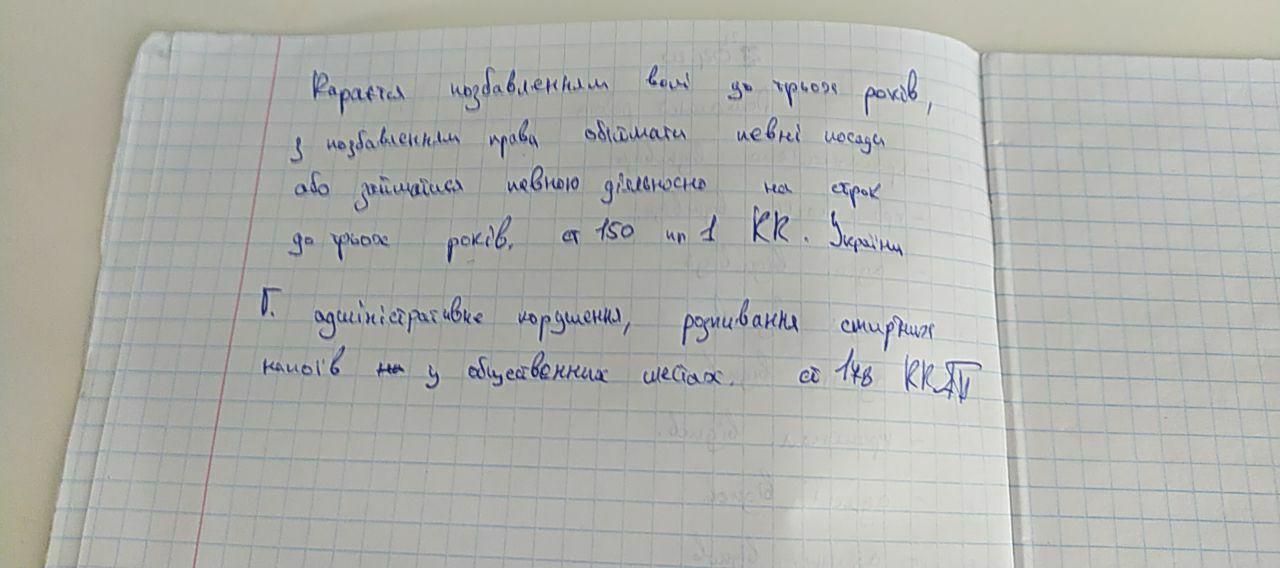 Карается позбавленням волі до трьох років,
з позбавленням права обіймати певні посади
або займатися певною діяльносю на строк
до трьох років. ст 150 пп 1 КК. України
Г. адміністративне порушення, розпивання спиртних
напоїв на у общественних местах. ст 178